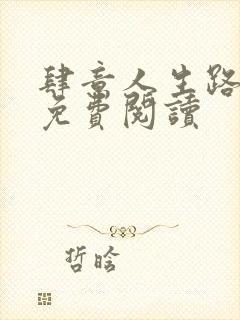 肆意人生路
免费閱讀
哲晗